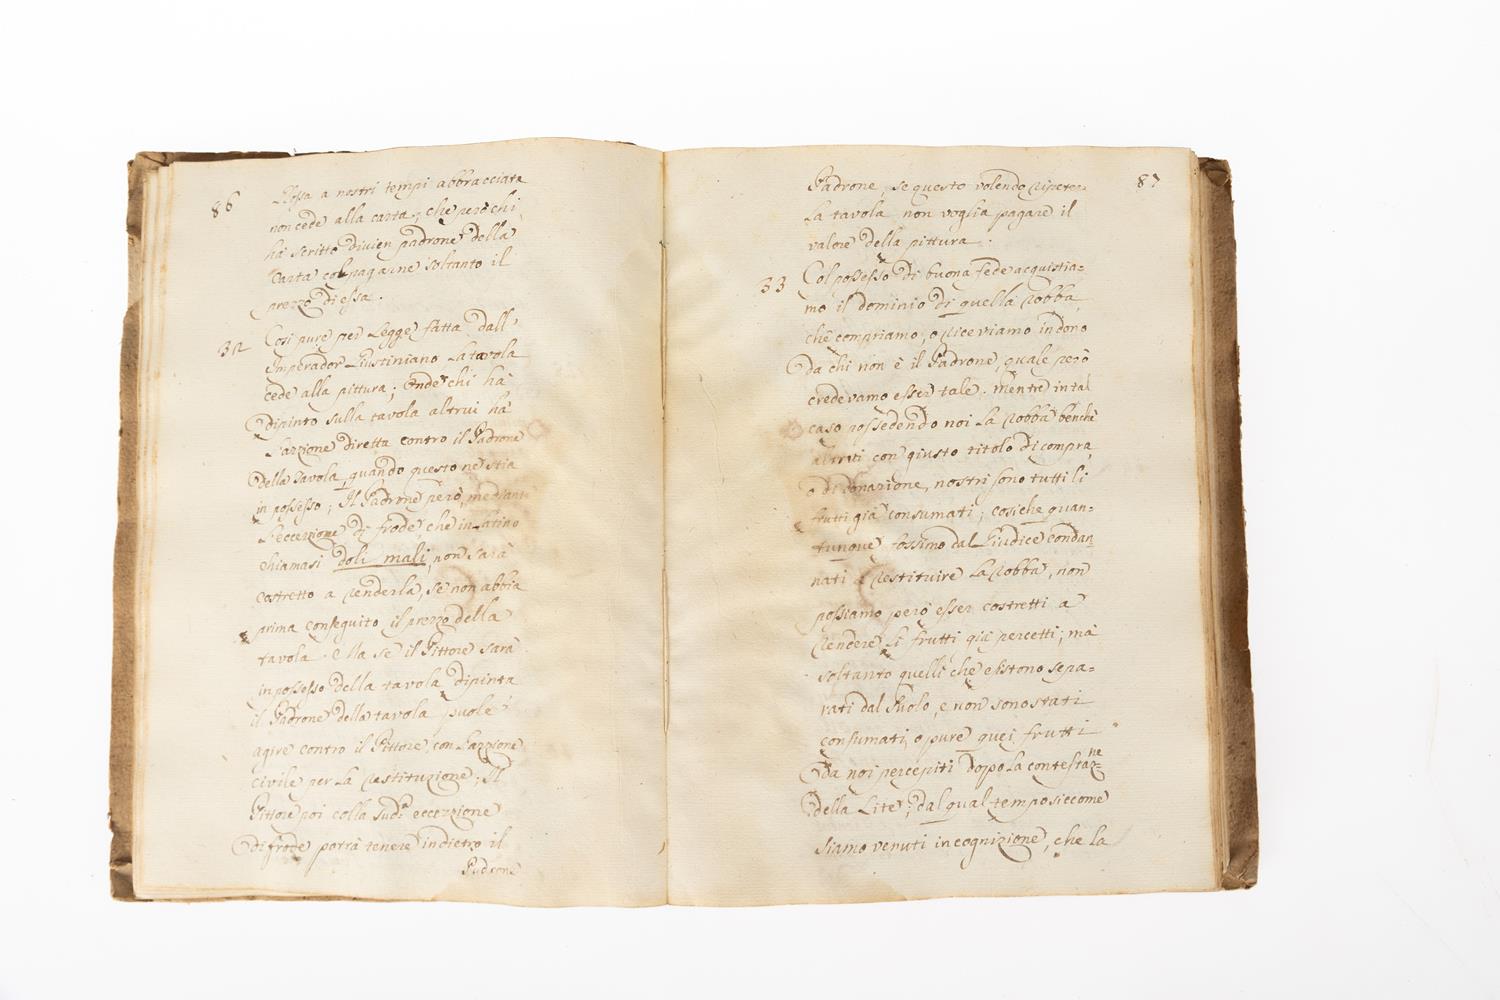 86
Glossa a nostri tempi abbracciata
non cede alla carta; che però chi
hà scritto divien padrone della
Carta col pagarne soltanto il
prezzo di essa.
32 Così pure per Legge fatta dall'
Imperador Giustiniano La tavola
cede alla pittura; Onde chi hà
dipinto sulla tavola altrui hà
L'azzione diretta contro il Padrone
della Tavola, quando questo ne stia
in possesso; Il Padrone però, mediante
L'eccezzione di frode, che in Latino
chiamasi doli mali, non sarà
costretto a renderla, se non abbia
prima conseguito il prezzo della
tavola. Ma se il Pittore sarà
in possesso della tavola dipinta
il Padrone della tavola puole
agire contro il Pittore, con L'azzione
civile per La restituzione; Il
Pittore poi colla Sud.a eccezzione
di frode potrà tenere indietro il
Padrone
87
Padrone, se questo volendo ripeter
La tavola non voglia pagare il
valore della pittura.
33 Col possesso di buona fede acquistia=
mo il dominio di quella robba,
che compriamo, o riceviamo in dono
da chi non è il Padrone, quale però
credevamo esser tale. mentre in tal
caso possedendo noi La robba benchè
altrui con giusto titolo di compra
o di donazione, nostri sono tutti li
frutti già consumati; cosiche quan=
tunque fossimo dal Giudice condan
nati a restituire La robba, non
possiamo però esser costretti a
rendere li frutti già percetti; mà
soltanto quelli che esistono sepa=
rati dal Suolo, e non sono stati
consumati, o pure quei frutti
da noi percepiti dopo la contestaz.ne
della Lite; dal qual tempo siccome
siamo venuti in cognizione, che la